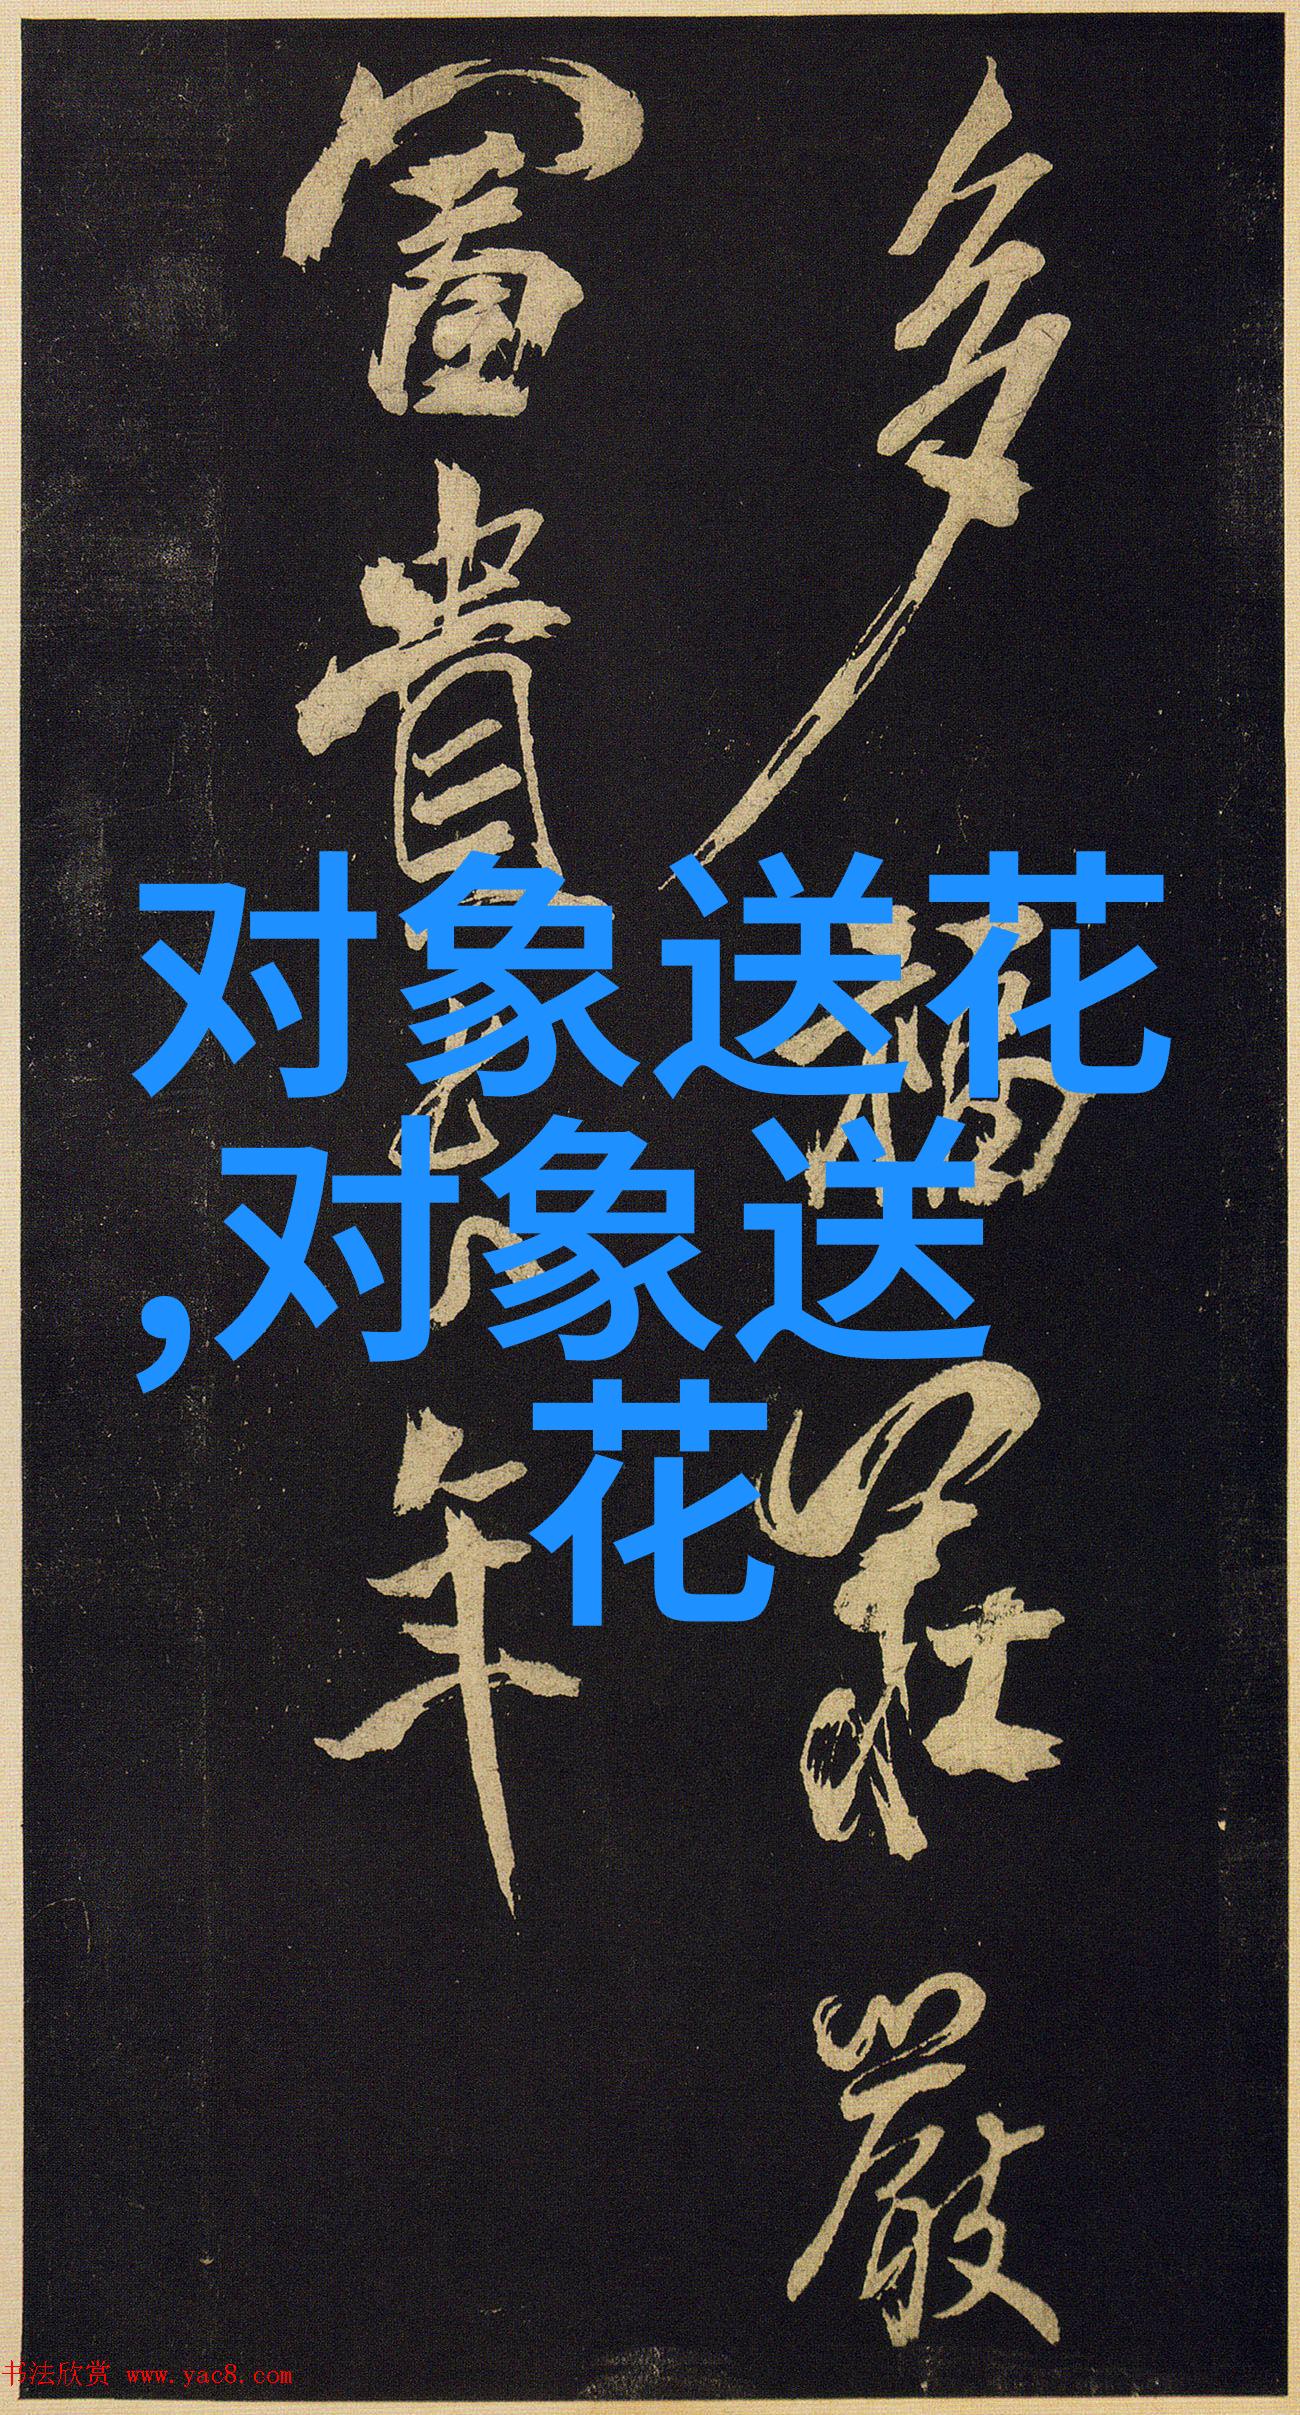 多福莊嚴
富貴元年
对象送花
,对象送
花
书法欣赏 www.yac8.com